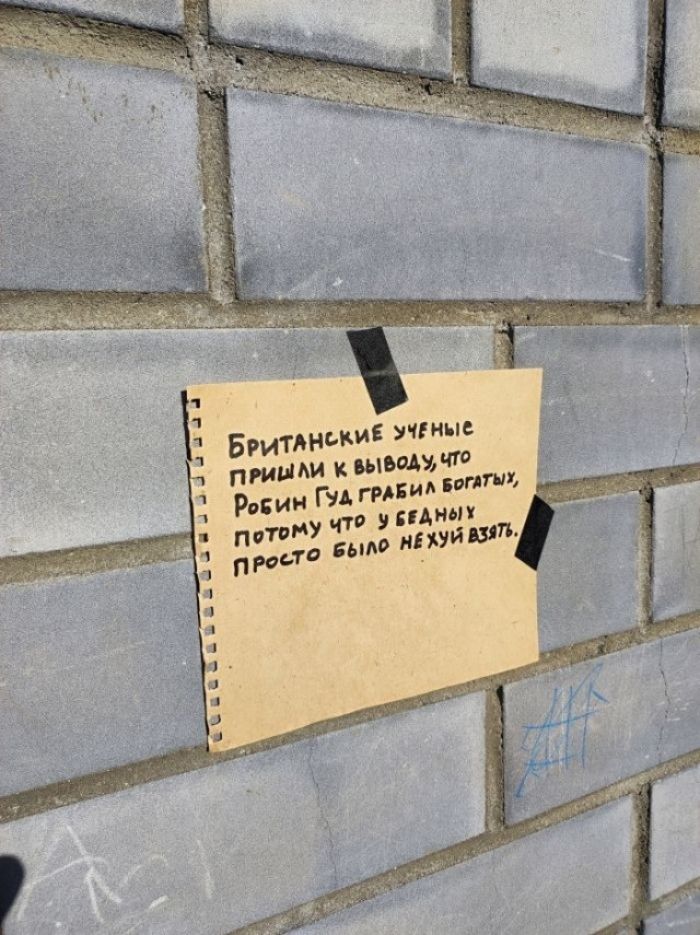 БРИТАНСКИЕ УЧЕНЫЕ
ПРИШЛИ К ВЫВОДУ, ЧТО
РОБИН ГУД ГРАБИЛ БОГАТЫХ,
ПОТОМУ ЧТО У БЕДНЫХ
ПРОСТО БЫЛО НЕХУЙ ВЗЯТЬ.